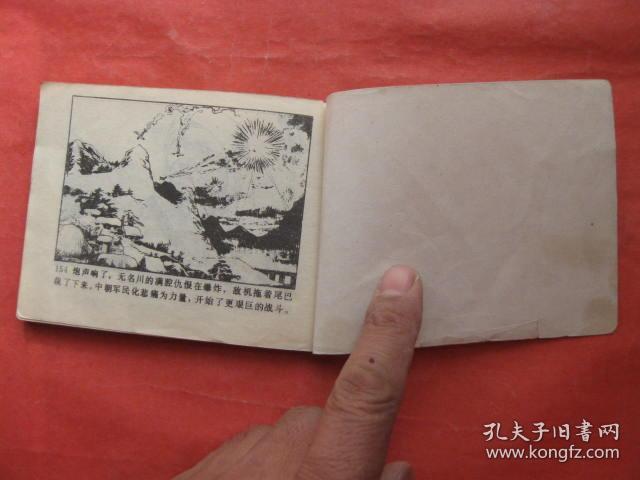 154 炮声响了，无名川的满腔仇恨在爆炸，敌机拖着尾巴
栽了下来。中朝军民化悲痛为力量，开始了更艰巨的战斗。
孔夫子旧书网
www.kongfz.com